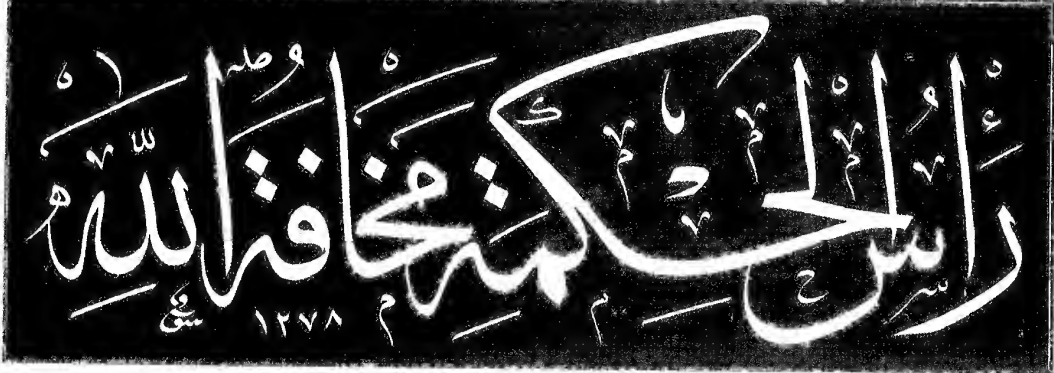 رَأْسُ الْحِكْمَةِ مَخَافَةُ اللّٰهِ
١٢٧٨